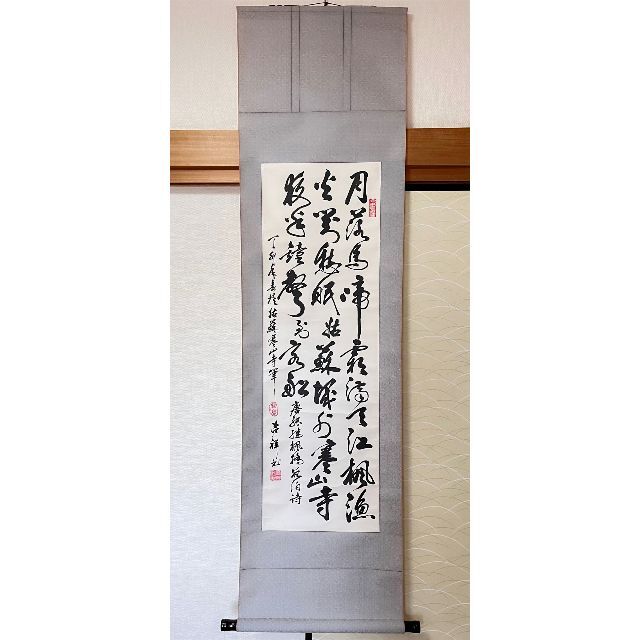 月落烏啼霜満天江楓漁
火對愁眠姑蘇城外寒山寺
夜半鐘聲到客船
唐張継楓橋夜泊詩
丁卯春
姑蘇寒山寺